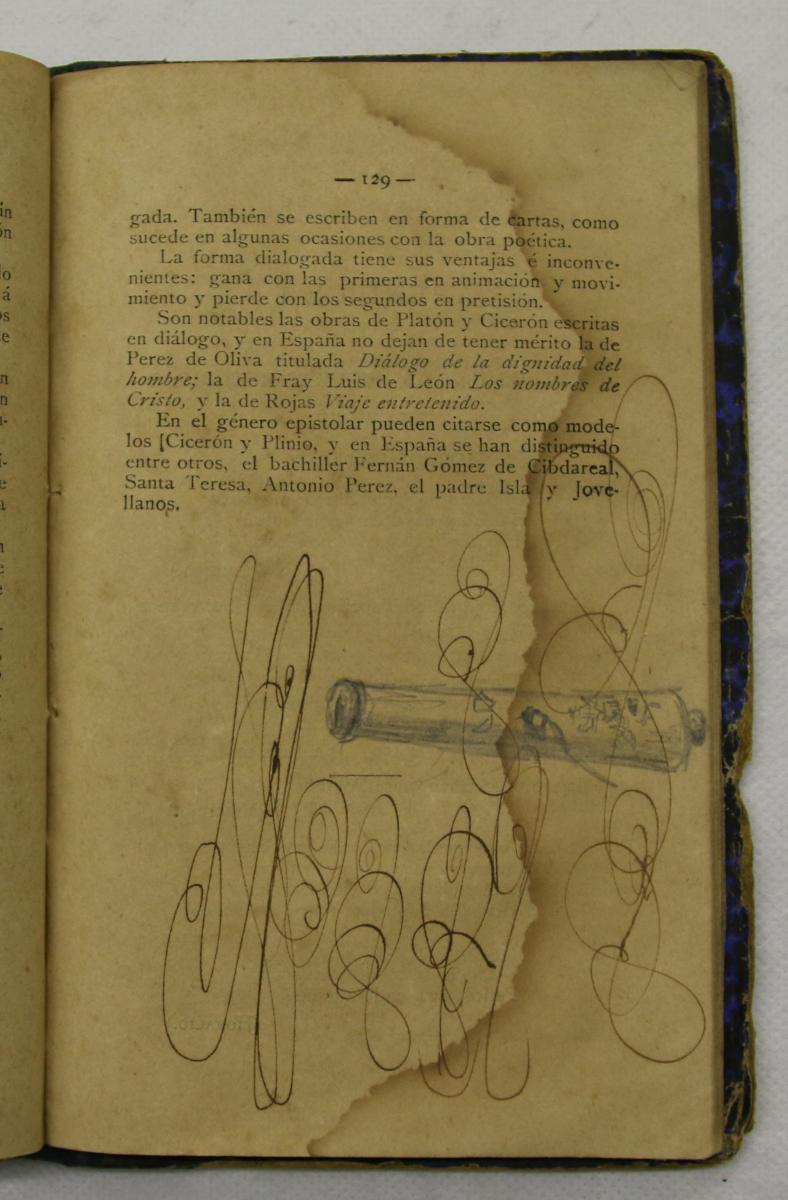 — 129 —
gada. También se escriben en forma de cartas, como
sucede en algunas ocasiones con la obra poética.
La forma dialogada tiene sus ventajas é inconve-
nientes: gana con las primeras en animación y movi-
miento y pierde con los segundos en pretisión.
Son notables las obras de Platón y Cicerón escritas
en diálogo, y en España no dejan de tener mérito la de
Perez de Oliva titulada Diálogo de la dignidad del
hombre; la de Fray Luis de León Los nombres de
Cristo, y la de Rojas Viaje entretenido.
En el género epistolar pueden citarse como mode-
los [Cicerón y Plinio, y en España se han distinguido
entre otros, el bachiller Fernán Gómez de Cibdareal,
Santa Teresa, Antonio Perez, el padre Isla y Jove-
llanos.